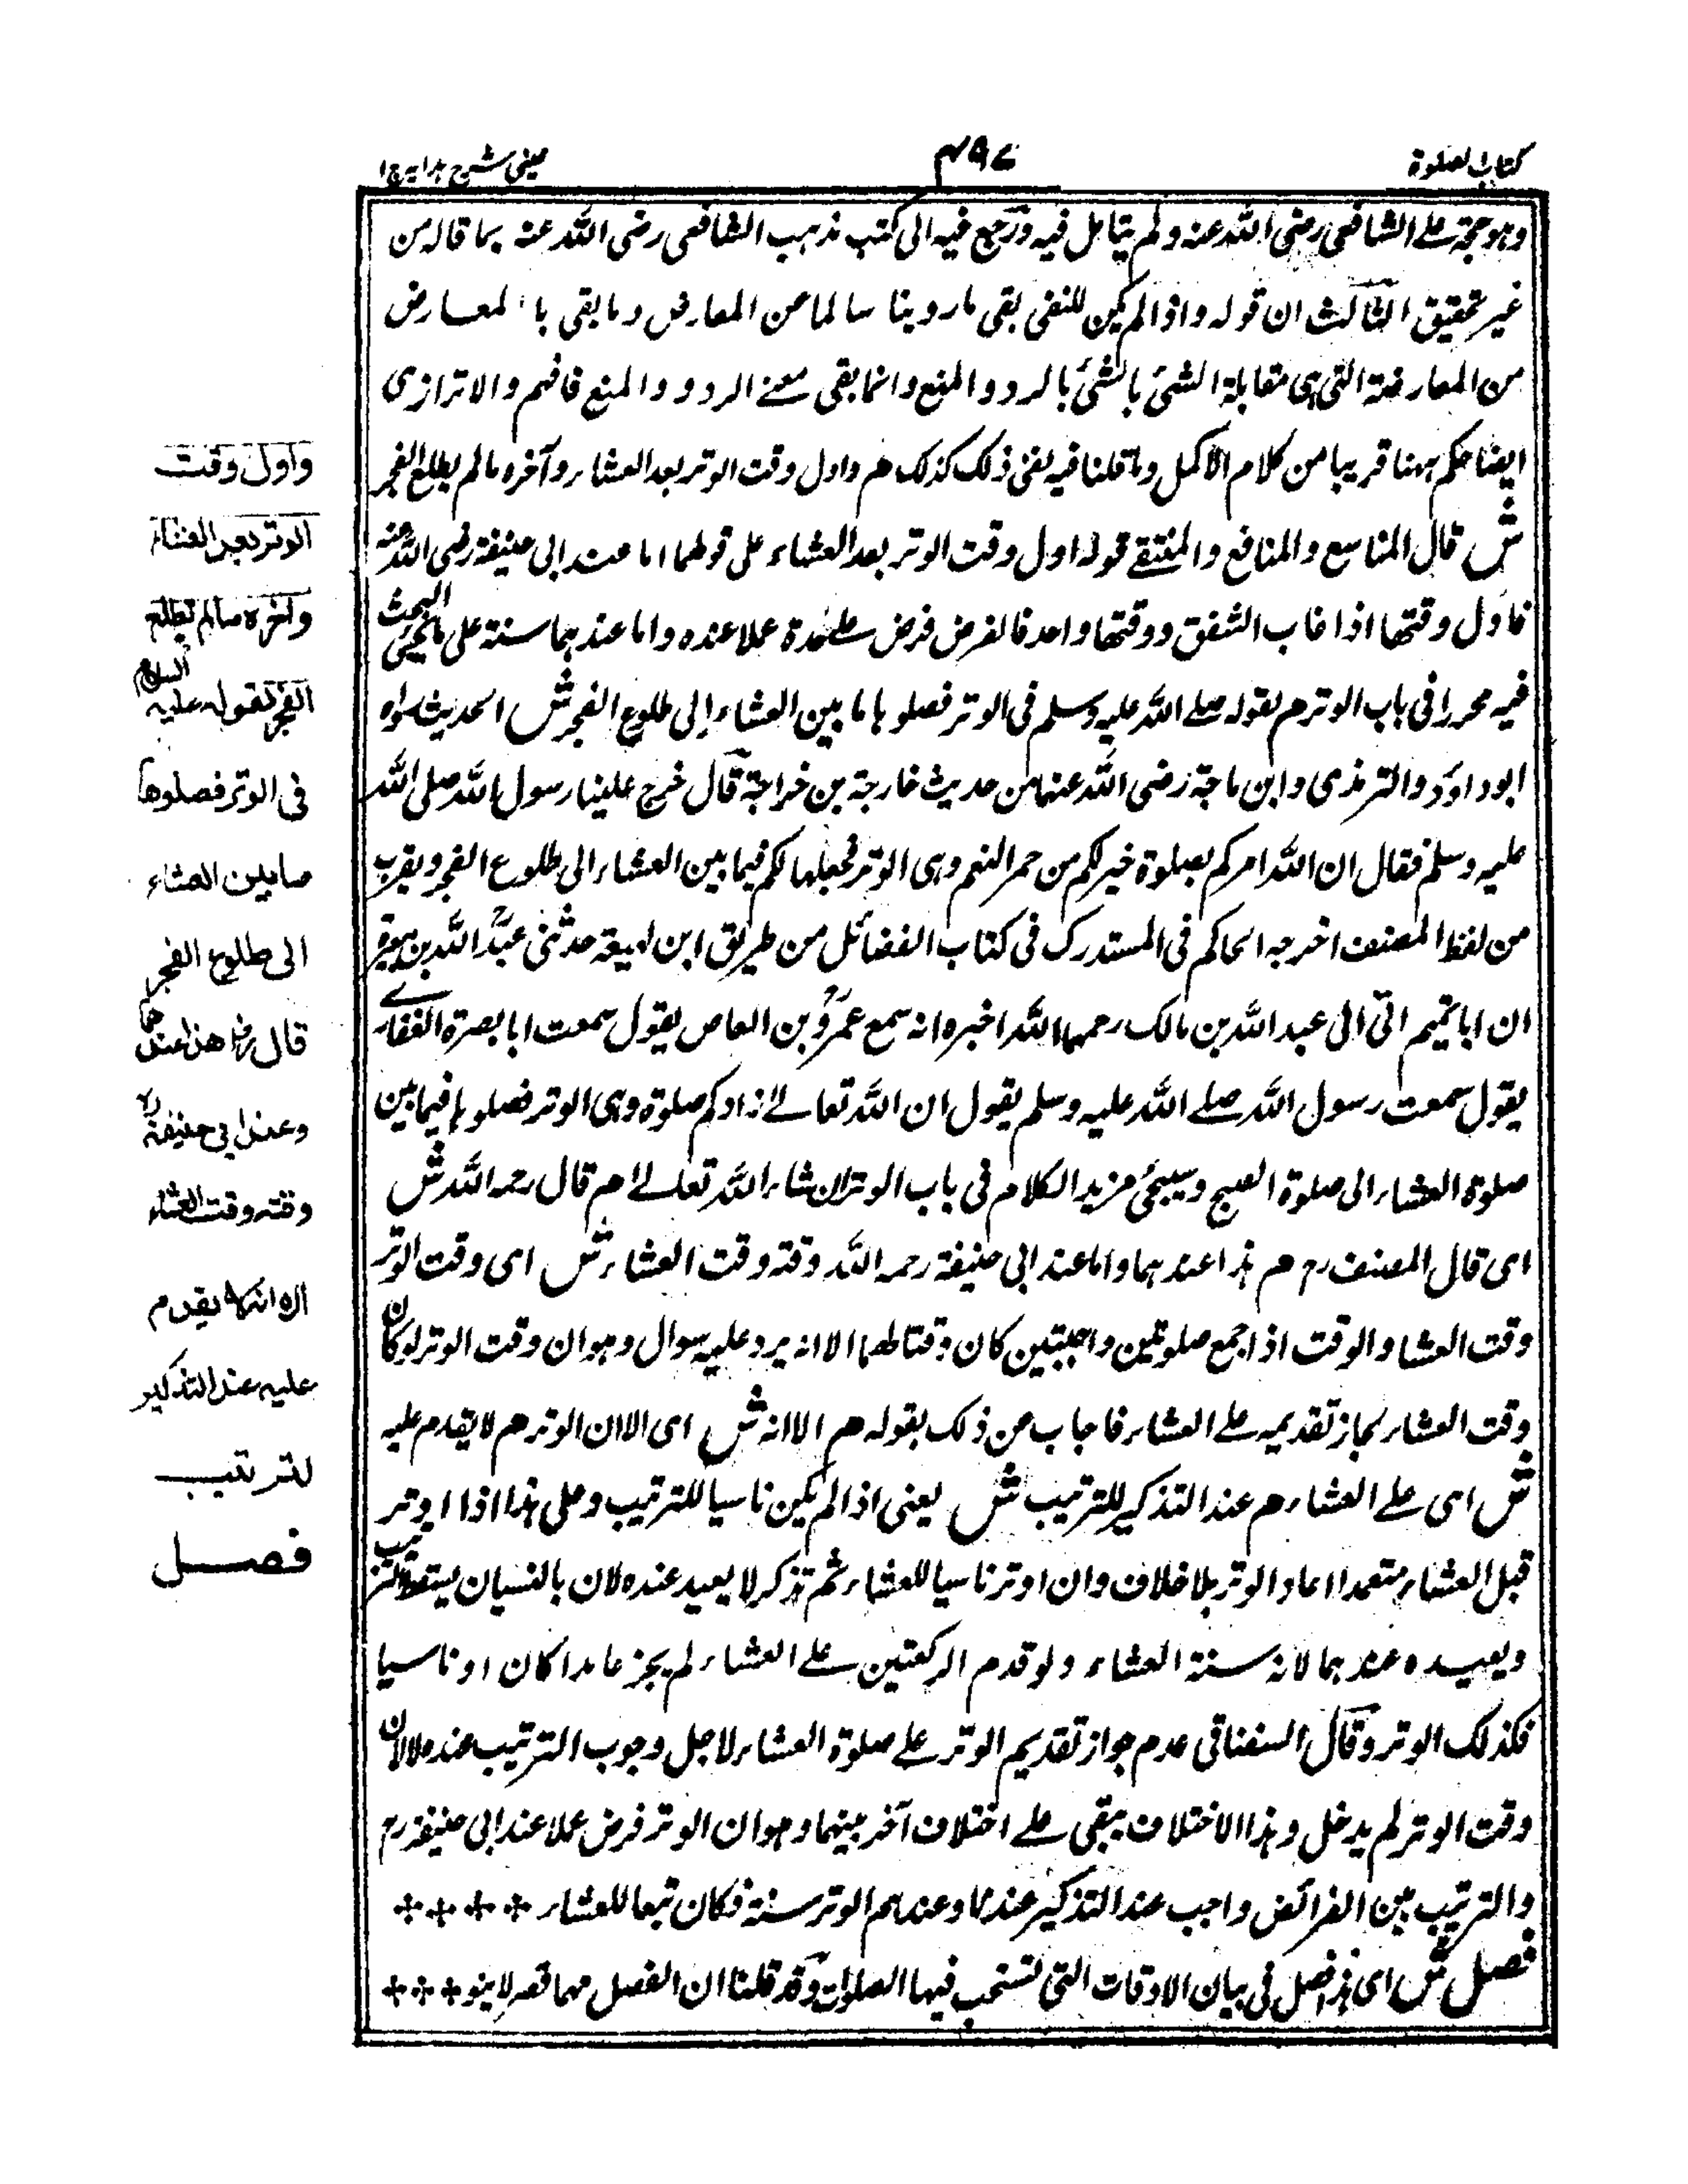 كتاب الصلوة
٤٩٧
عينى شرح هدايه ج ا
وهو حجة على الشافعى رضى الله عنه ولم يتامل فيه ورجع فيه الى كتب مذهب الشافعى رضى الله عنه بما قاله من
غير تحقيق الثالث ان قوله واذا لم يكن للنفى بقى ما روينا سالما عن المعارض وما بقى با المعارض
من المعارضة التى هى مقابلة الشئ بالشئ بالرد والمنع وانما بقى معنى الرد و والمنع فافهم والاترازى
ايضا حكم ههنا قريبا من كلام الاكمل وما قلنا فيه ففى ذلك كذلك هم واول وقت الوتر بعد العشاء وآخره مالم يطلع الفجر
ش قال المناسع والمنافع والمفتقى قوله اول وقت الوتر بعد العشاء على قولهما اما عند ابى حنيفة رضى الله عنه
فاول وقتها اذا غاب الشفق ووقتها واحد فالفرض فرض عليحدة عملا عنده واما عندهما سنة على ما يجيئ البحث
فيه محررا فى باب الوتر م لقوله صلى الله عليه وسلم فى الوتر فصلوها ما بين العشاء إلى طلوع الفجر ش الحديث رواه
ابو داود والترمذى وابن ماجة رضى الله عنهما من حديث خارجة بن خراجة قال خرج علينا رسول الله صلى الله
عليه وسلم فقال ان الله امركم بصلوة خير لكم من حمر النعم وهى الوتر فجعلها لكم فيما بين العشاء الى طلوع الفجر ويقرب
من لفظ المصنف اخرجه الحاكم فى المستدرك فى كتاب الفضائل من طريق ابن لهيعة حدثنى عبد الله بن هبيرة
ان ابا تميم اتى الى عبد الله بن مالك رحمهما الله اخبره انه سمع عمرو بن العاص يقول سمعت ابا بصرة الغفارے
يقول سمعت رسول الله صلى الله عليه وسلم يقول ان الله تعالى زادكم صلوة وهى الوتر فصلوها فيما بين
صلوة العشاء الى صلوة الصبح وسيجئ مزيد الكلام فى باب الوتر ان شاء الله تعالى م قال رحمه الله ش
اى قال المصنف رح هم هذا عندهما واما عند ابى حنيفة رحمه الله وقته وقت العشاء ش اى وقت الوتر
وقت العشا والوقت اذا جمع صلوتين واجبتين كان وقتا لهما الا انه يرد عليه سوال وهو ان وقت الوتر لو كان
وقت العشاء لجاز تقديمه على العشاء فاجاب عن ذلك بقوله هم الا انه ش اى الا ان الوتر هم لا يقدم عليه
ش اى على العشاء م عند التذكير للترتيب ش يعنى اذا لم يكن ناسيا للترتيب وعلى هذا اذا اوتر
قبل العشاء متعمدا اعاد الوتر بلا خلاف وان اوتر ناسيا للعشاء ثم تذكر لا يعيد عنده لان بالنسيان يسقط الترتيب
ويعيده عندهما لانه سنة العشاء ولو قدم الركعتين على العشاء لم يجز عامدا كان او ناسيا
فكذلك الوتر وقال السغناقى عدم جواز تقديم الوتر على صلوة العشاء لاجل وجوب الترتيب عنده لا لان
وقت الوتر لم يدخل وهذا الاختلاف يبقى على اختلاف آخر بينهما وهو ان الوتر فرض عملا عند ابى حنيفة رح
والترتيب بين الفرائض واجب عند التذكير عندنا وعندهم الوتر سنة فكان تبعا للعشاء
فصل ش اى هذا فصل فى بيان الاوقات التى تستحب فيها الصلوات وقد قلنا ان الفصل مهما قصر لا ينو
واول وقت
الوتر بعد العشاء
واخره مالم يطلع
الفجر لقوله عليه السلام
فى الوتر فصلوها
ما بين العشاء
الى طلوع الفجر
قال رض هذا عندهما
وعند ابى حنيفة رح
وقته وقت العشاء
الا انه لا يقدم
عليه عند التذكير
لترتيب
فصل